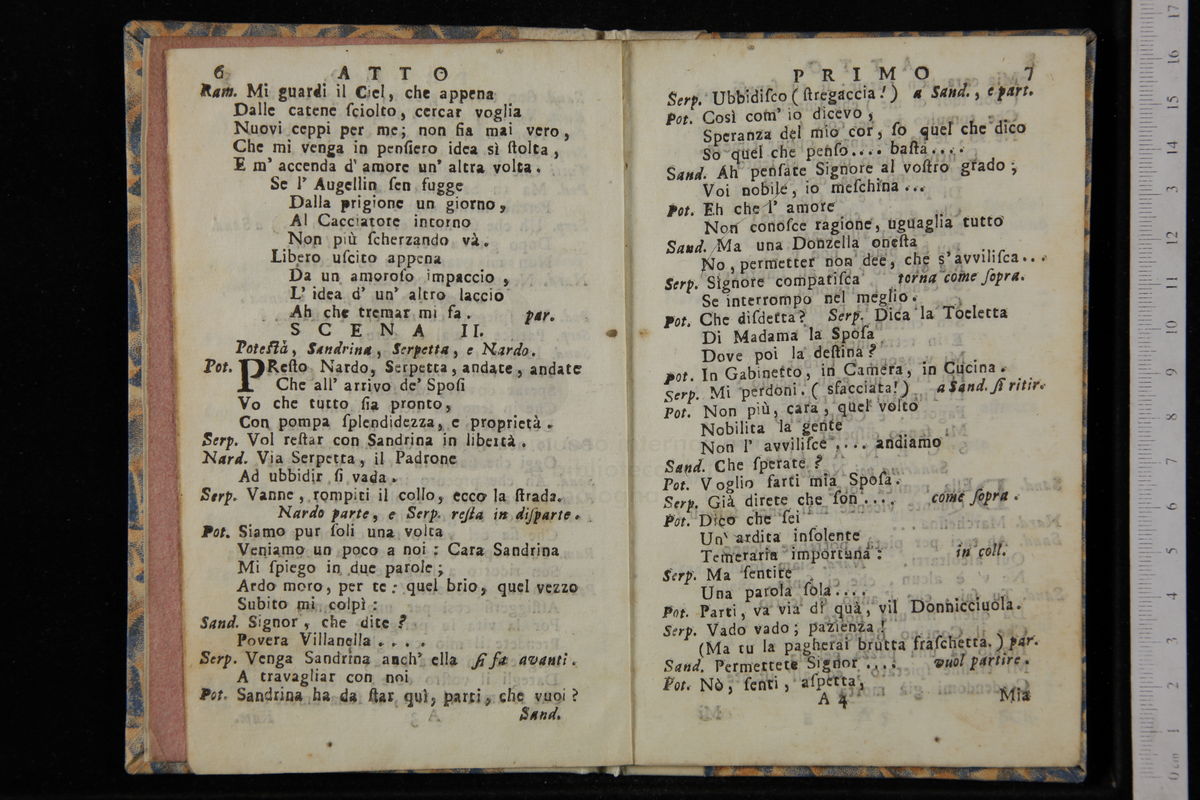 6 ATTO
Ram. Mi guardi il Ciel, che appena
Dalle catene ſciolto, cercar voglia
Nuovi ceppi per me; non ſia mai vero,
Che mi venga in penſiero idea sì ſtolta,
E m' accenda d' amore un' altra volta.
Se l' Augellin ſen fugge
Dalla prigione un giorno,
Al Cacciatore intorno
Non più ſcherzando và.
Libero uſcito appena
Da un amoroſo impaccio,
L' idea d' un' altro laccio
Ah che tremar mi fa. par.
SCENA II.
Poteſtà, Sandrina, Serpetta, e Nardo.
Pot. PReſto Nardo, Serpetta, andate, andate
Che all' arrivo de' Spoſi
Vo che tutto ſia pronto,
Con pompa ſplendidezza, e proprietà.
Serp. Vol reſtar con Sandrina in libertà.
Nard. Via Serpetta, il Padrone
Ad ubbidir ſi vada.
Serp. Vanne, rompiti il collo, ecco la ſtrada.
Nardo parte, e Serp. reſta in diſparte.
Pot. Siamo pur ſoli una volta
Veniamo un poco a noi: Cara Sandrina
Mi ſpiego in due parole;
Ardo moro, per te: quel brio, quel vezzo
Subito mi colpì:
Sand. Signor, che dite?
Povera Villanella....
Serp. Venga Sandrina anch' ella ſi fa avanti.
A travagliar con noi
Pot. Sandrina ha da ſtar quì, parti, che vuoi?
Sand.
PRIMO 7
Serp. Ubbidiſco (ſtregaccia!) a Sand., e part.
Pot. Così com' io dicevo,
Speranza del mio cor, ſo quel che dico
So quel che penſo.... baſta....
Sand. Ah penſate Signore al voſtro grado;
Voi nobile, io meſchina...
Pot. Eh che l' amore
Non conoſce ragione, uguaglia tutto
Sand. Ma una Donzella oneſta
No, permetter non dee, che s'avviliſca...
Serp. Signore compatiſca torna come ſopra.
Se interrompo nel meglio.
Pot. Che diſdetta? Serp. Dica la Toeletta
Di Madama la Spoſa
Dove poi la deſtina?
pot. In Gabinetto, in Camera, in Cucina.
Serp. Mi perdoni. (sfacciata!) a Sand. ſi ritir.
Pot. Non più, cara, quel volto
Nobilita la gente
Non l' avviliſce.... andiamo
Sand. Che ſperate?
Pot. Voglio farti mia Spoſa.
Serp. Già direte che ſon.... come ſopra.
Pot. Dico che ſei
Un' ardita inſolente
Temeraria importuna: in coll.
Serp. Ma ſentite
Una parola ſola....
Pot. Parti, va via di quà, vil Donnicciuola.
Serp. Vado vado; pazienza!
(Ma tu la pagherai brutta fraſchetta.) par.
Sand. Permettete Signor.... vuol partire.
Pot. Nò, ſenti, aſpetta,
A 4 Mia